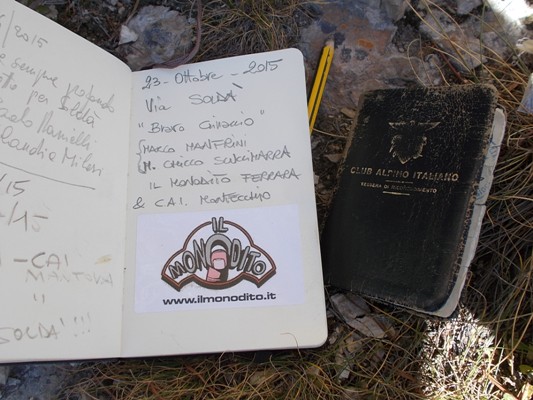 /2015
sempre
per Soldà
/15
/15
- CAI
MANTOVA
"
SOLDA' !!!
23 - Ottobre - 2015
Via SOLDÀ
"Bravo
MARCO MANFRINI
M. CHICCO
IL MONODITO FERRARA
& C.A.I. Montecchio
IL
MONODITO
www.ilmonodito.it
CLUB ALPINO ITALIANO
TESSERA DI RICONOSCIMENTO